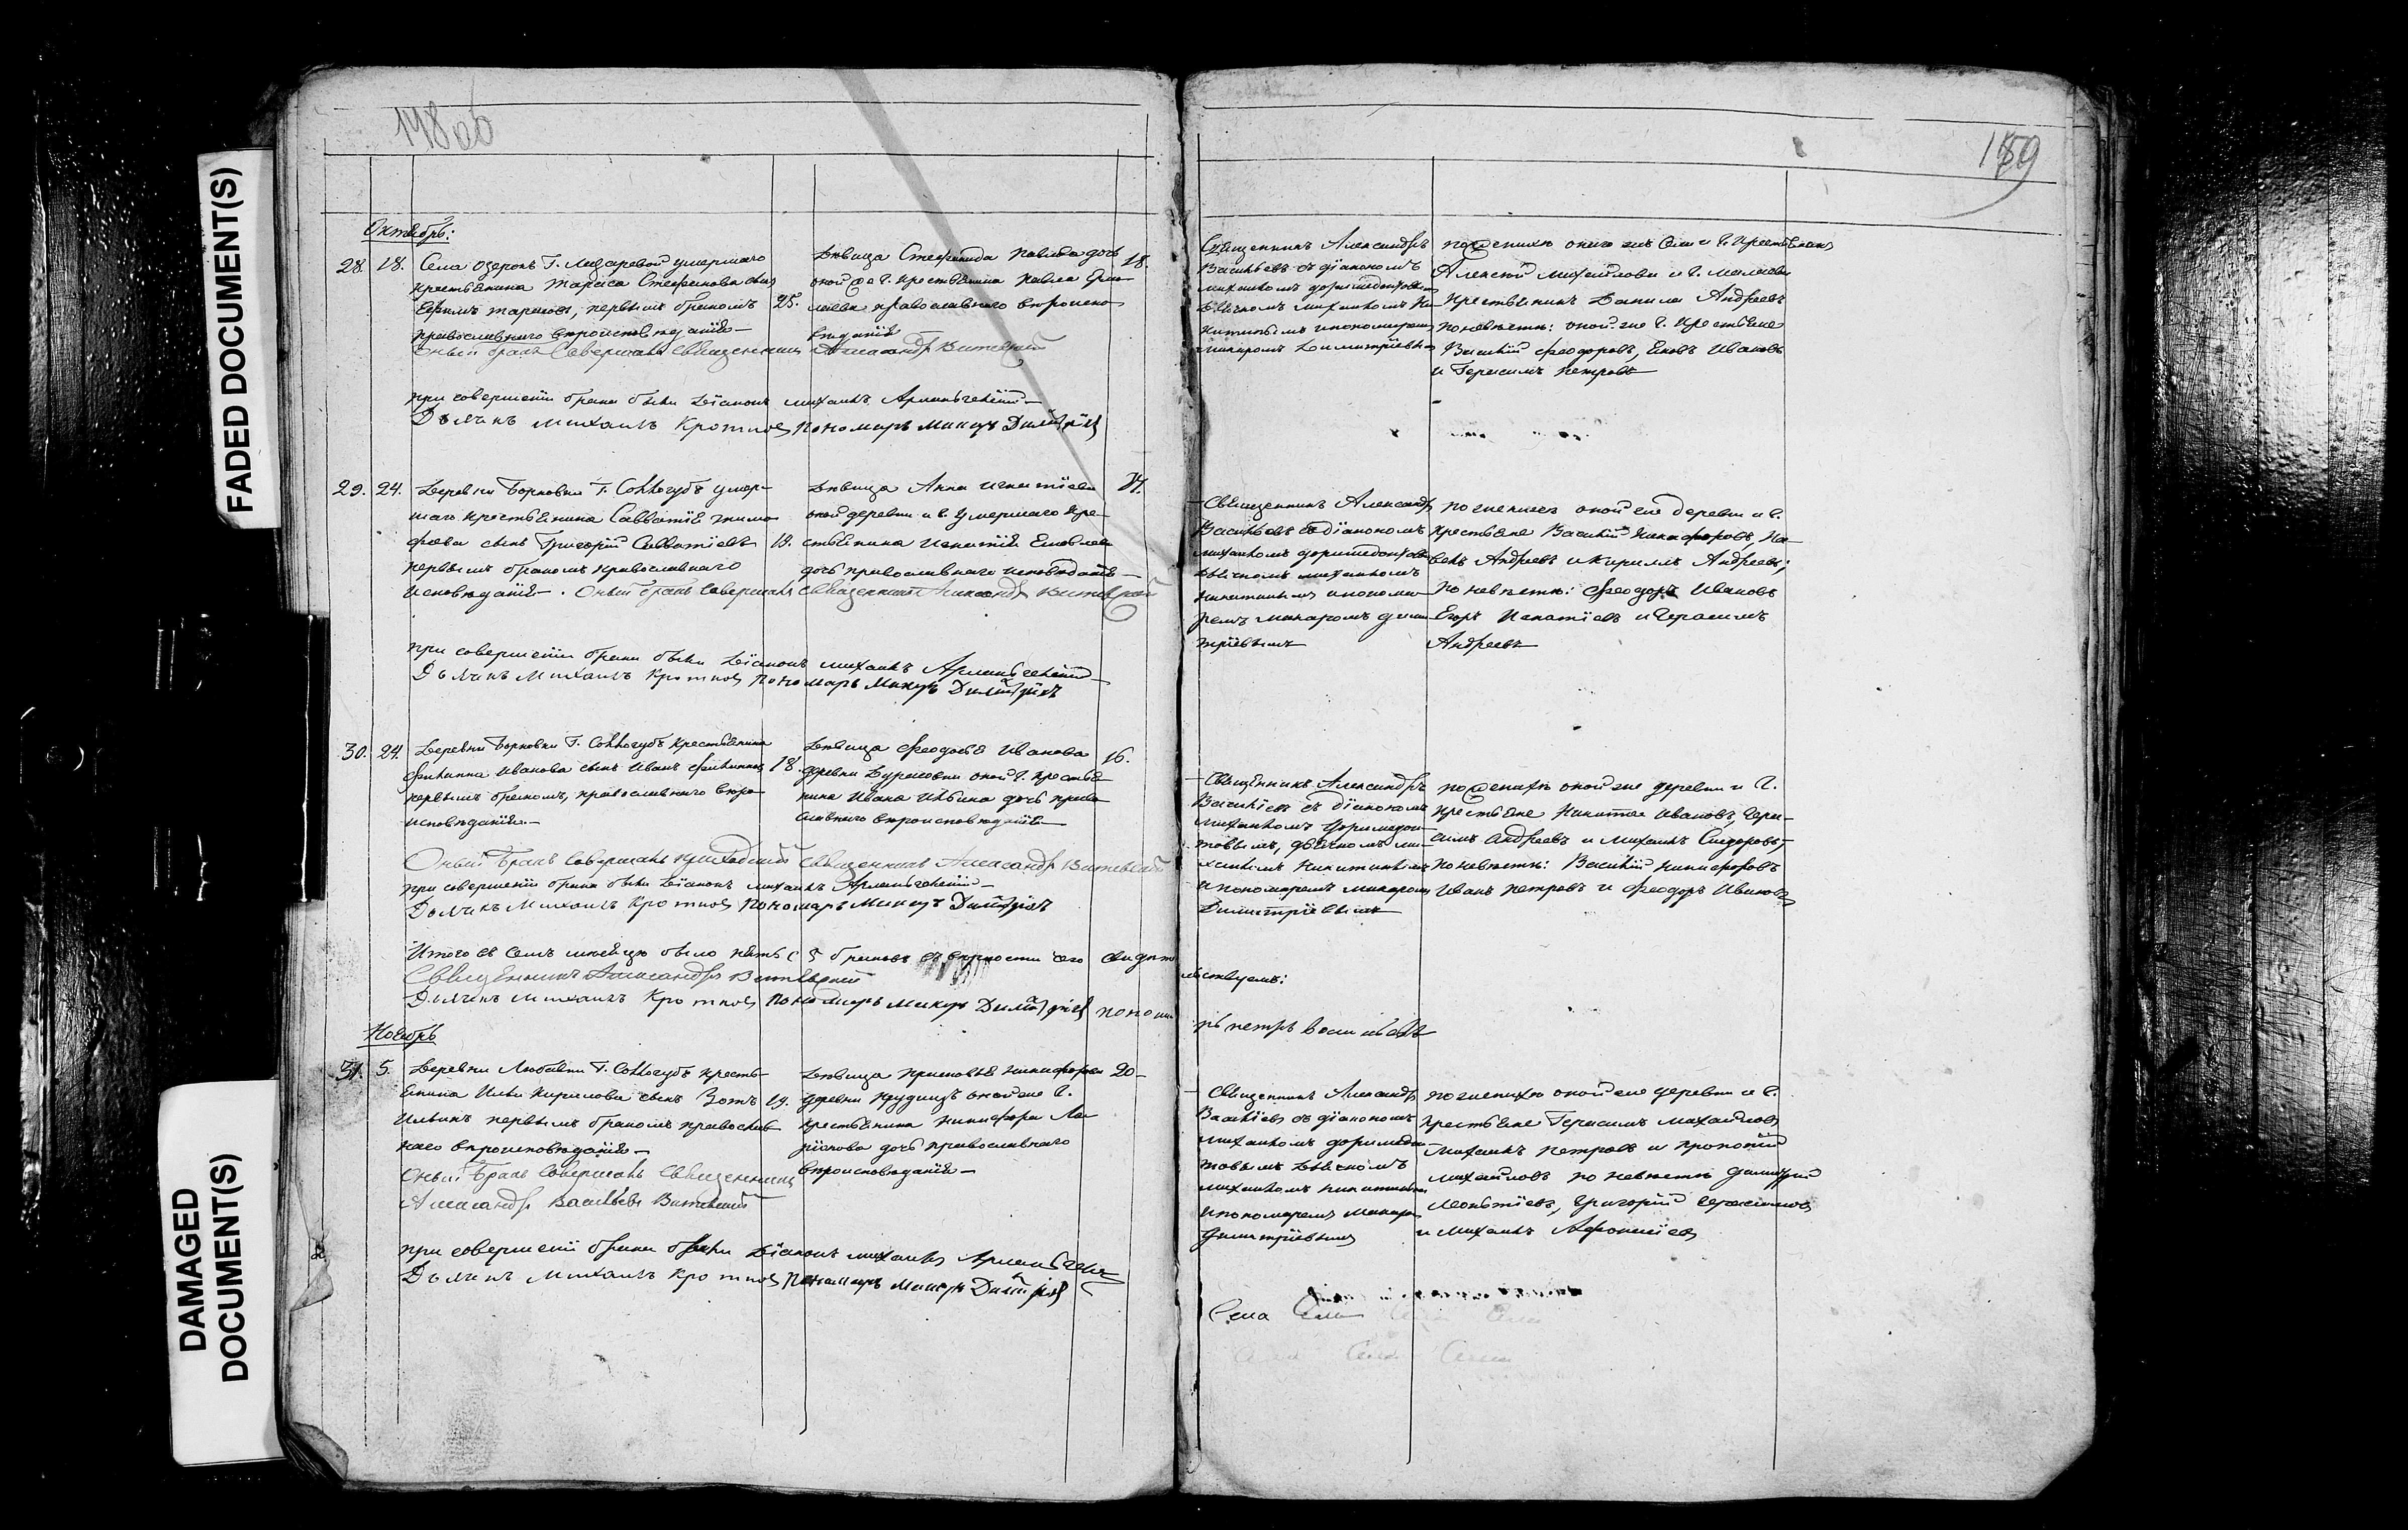 FADED DOCUMENT(S)
DAMAGED
DOCUMENT(S)
148 об
149
Октябрь:
28. 18. Села Озерокъ Г. Лазаревой умершаго
крестьянина Тараса Стефанова сынъ
Ефимъ Тарасовъ, первымъ бракомъ 25.
православнаго вѣроисповѣданія
Оный бракъ Совершалъ Священникъ Александръ Витевский
Дѣвица Стефанида Павлова дочь 18.
оной же Г. крестьянина Павла
православнаго вѣроиспо
вѣданія
при совершеніи брака были Діаконъ Михаилъ
Дьячикъ Михаилъ Кротковъ Пономарь Макаръ Димитріевъ
Священникъ Александръ
Васильевъ съ діакономъ
Михаиломъ Доримедонтовымъ
Дьячкомъ Михаиломъ Ни
китинымъ и пономаремъ
Макаромъ Димитріевымъ
по женихѣ онаго же села и Г. крестьяне
Алексѣй Михайловъ и Г.
крестьянинъ Данила Андреевъ
по невѣстѣ: оной же Г. крестьяне
Василій Феодоровъ, Яковъ Ивановъ
и Герасимъ Петровъ
29. 24. Деревни Борковки Г. Соллогубъ умер-
шаго крестьянина Савватія Тимо
фѣева сынъ Григорій Савватіевъ 19.
первымъ бракомъ православнаго
исповѣданія. Оный бракъ Совершалъ Священникъ Александръ Витевский
Дѣвица Анна Игнатіева
оной деревни и Г. умершаго кре-
стьянина Игнатія
дочь православнаго исповѣданія
при совершеніи брака были Діаконъ Михаилъ
Дьячикъ Михаилъ Кротковъ Пономарь Макаръ Димитріевъ
Священникъ Александръ
Васильевъ съ діакономъ
Михаиломъ Доримедонтовымъ
дьячкомъ Михаиломъ
Никитинымъ и понома
ремъ Макаромъ Дими
тріевымъ
по женихѣ оной же деревни и Г.
крестьяне Василій Никифоровъ, Па
велъ Андреевъ и Кириллъ Андреевъ;
по невѣстѣ: Феодоръ Ивановъ
Егоръ Игнатіевъ и Герасимъ
Андреевъ
30. 24. Деревни Борковки Г. Соллогубъ крестьянина
Филиппа Иванова сынъ Иванъ Филипповъ 18.
первымъ бракомъ, православнаго вѣро
исповѣданія.
Дѣвица Феодосья Иванова 16.
деревни оной Г. крестья
нина Ивана Ильина дочь право
славнаго вѣроисповѣданія
Оный бракъ Совершалъ приходский Священникъ Александръ Витевский
при совершеніи брака были Діаконъ Михаилъ
Дьячикъ Михаилъ Кротковъ Пономарь Макаръ Димитріевъ
Священникъ Александръ
Васильевъ съ діакономъ
Михаиломъ Доримедон
товымъ, дьячкомъ Ми
хаиломъ Никитинымъ
и пономаремъ Макаромъ
Димитріевымъ
по женихѣ оной же деревни и Г.
крестьяне Никита Ивановъ, Гера-
симъ Андреевъ и Михаилъ Сидоровъ,
по невѣстѣ: Василій Никифоровъ
Иванъ Петровъ и Феодоръ Ивановъ
Итого въ семъ мѣсяцѣ было пять 5 браковъ въ вѣрности чего свидѣте
льствуемъ:
Священникъ Александръ Витевский
Дьячикъ Михаилъ Кротковъ Пономарь Макаръ Димитріевъ поном
рь Петръ Васильевъ
Ноябрь
31. 5. Деревни Любавки Г. Соллогубъ кресть-
янина Ильи Кирилова сынъ Зотъ 19.
Ильинъ первымъ бракомъ православ
наго вѣроисповѣданія
Оный бракъ Совершалъ Священникъ
Александръ Васильевъ Витевский
Дѣвица Прасковья Никифорова 20
деревни оной же Г.
крестьянина Никифора Ла
ріонова дочь православнаго
вѣроисповѣданія
при совершеніи брака были Діаконъ Михаилъ
Дьячикъ Михаилъ Кротковъ Пономарь Макаръ Димитріевъ
Священникъ Александръ
Васильевъ съ діакономъ
Михаиломъ Доримедон
товымъ Дьячкомъ
Михаиломъ Никитинымъ
и пономаремъ Макаромъ
Димитріевымъ
по женихѣ оной же деревни и Г.
крестьяне Герасимъ Михайловъ
Михаилъ Петровъ и Прокопій
Михайловъ по невѣстѣ Димитрій
Леонтіевъ, Григорій Герасимовъ
и Михаилъ Афонасіевъ
Села